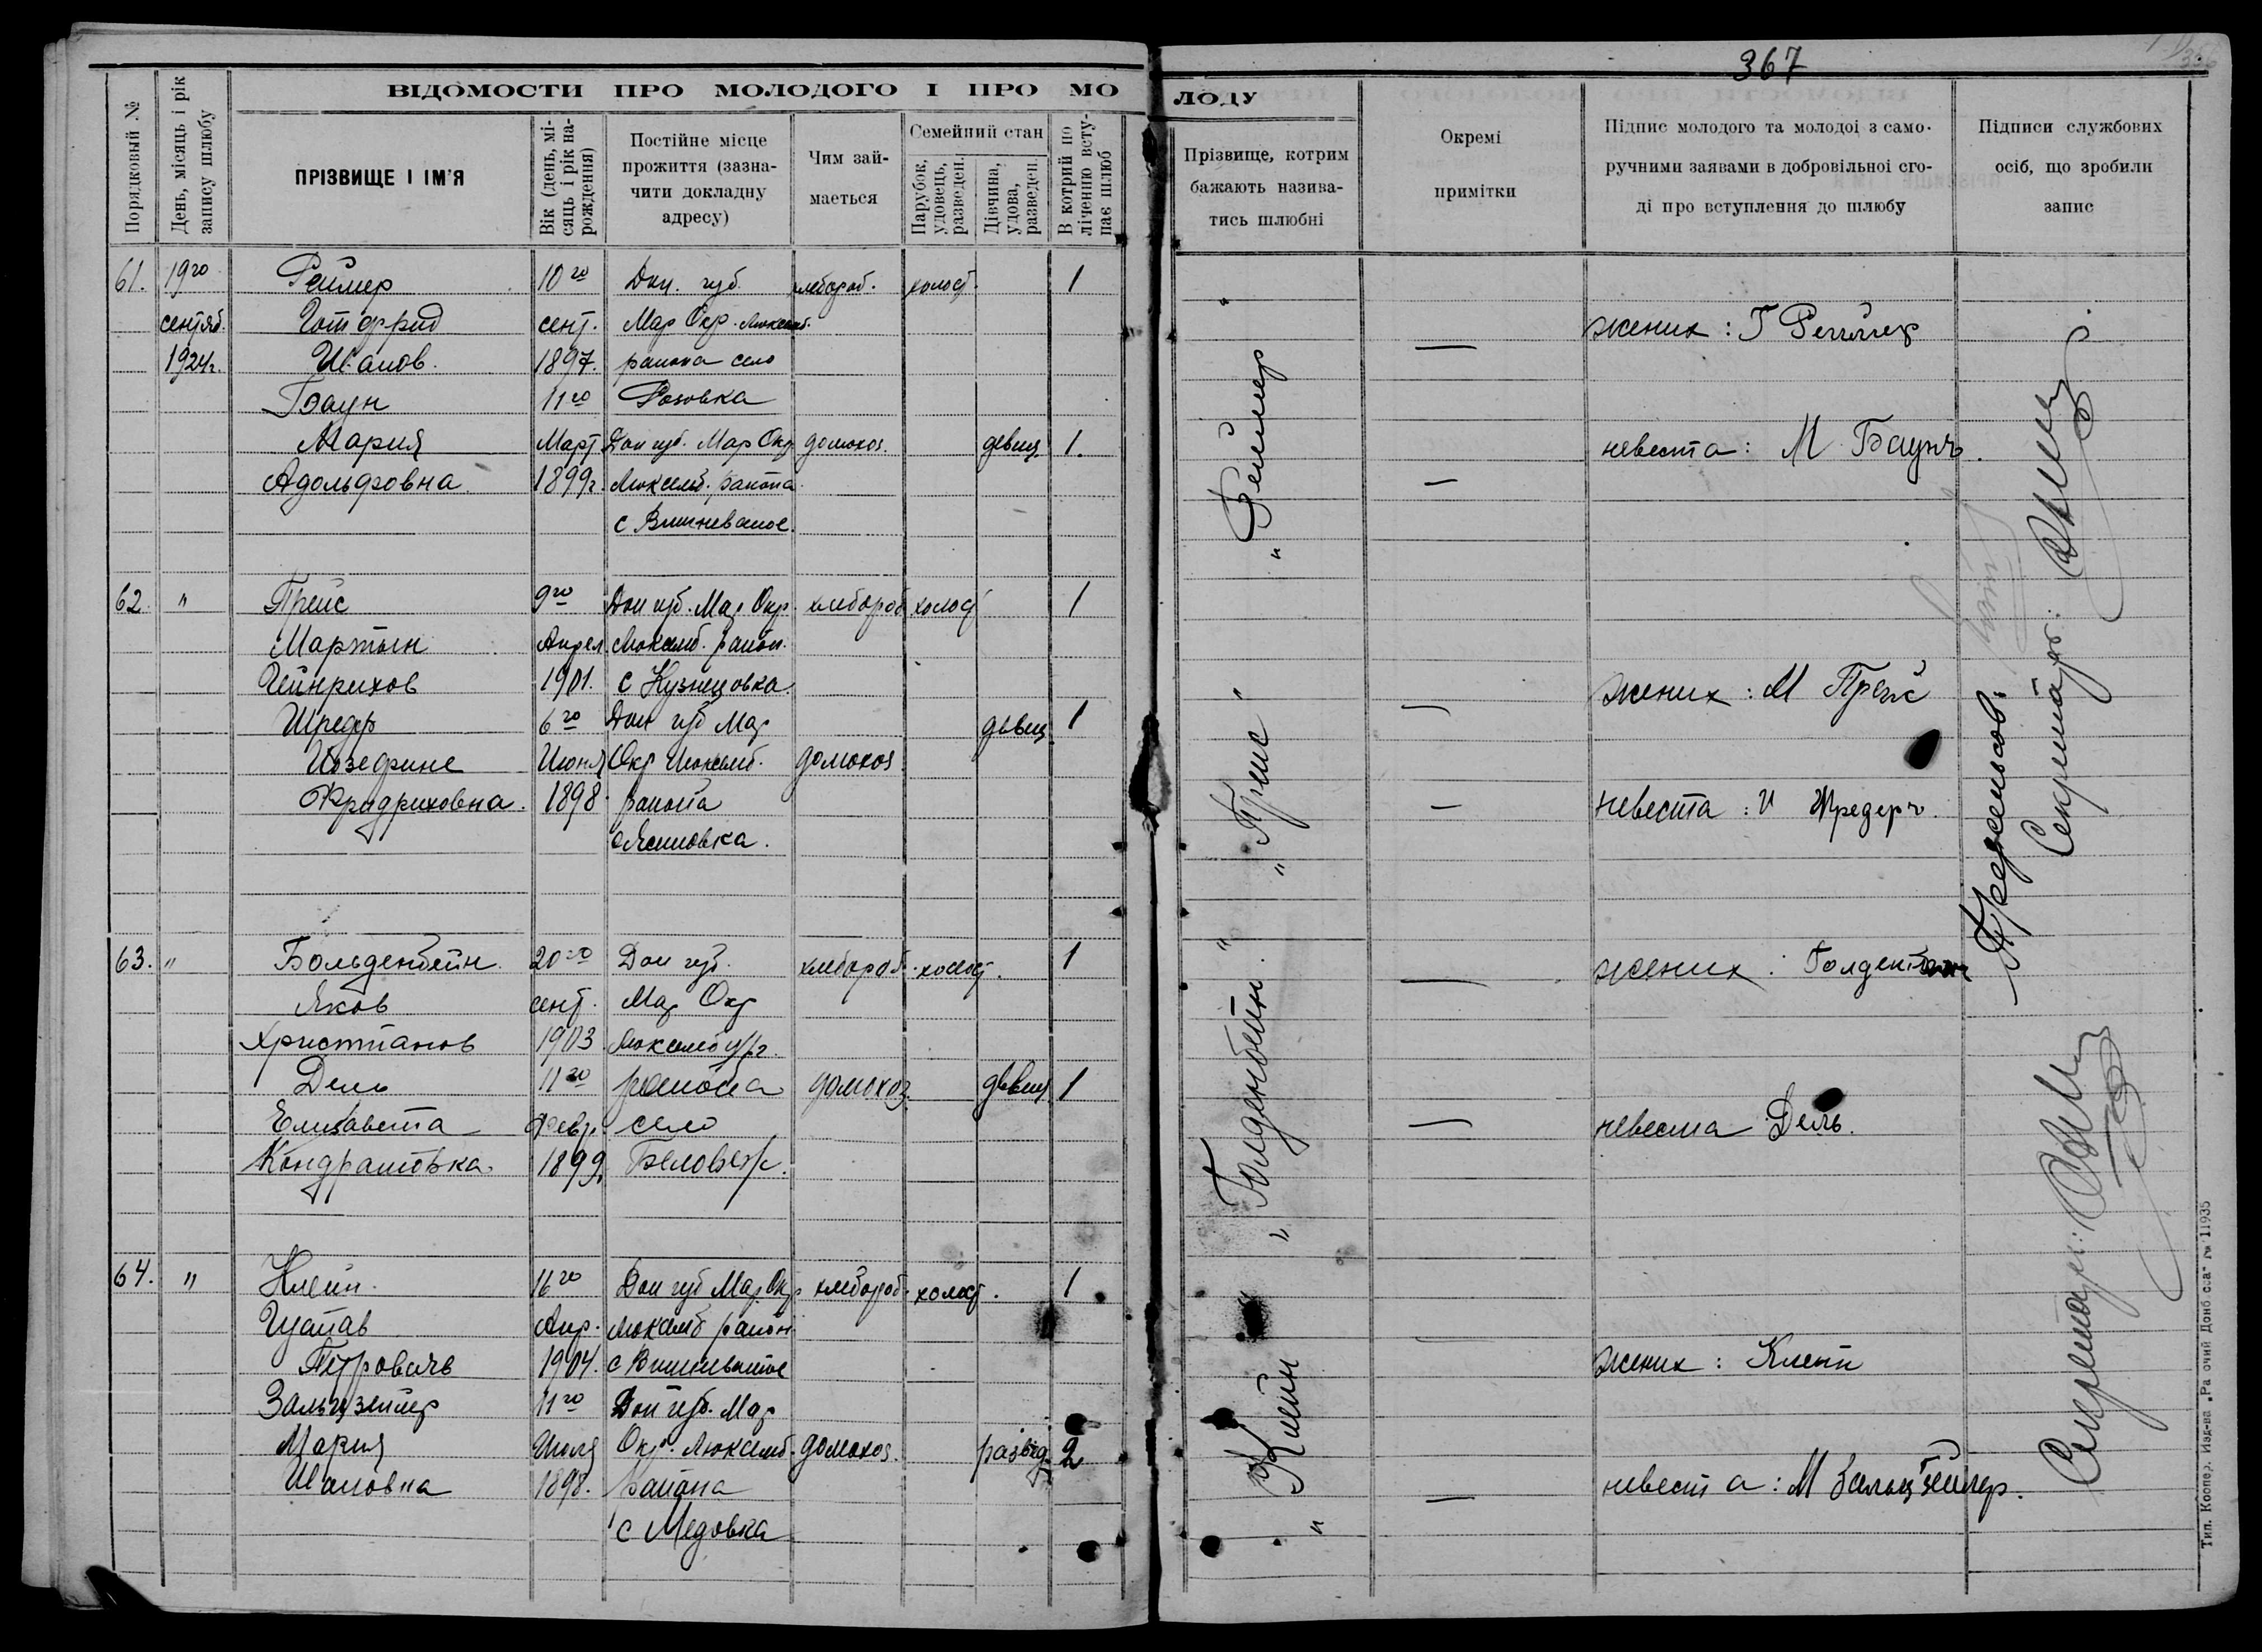 367
ВІДОМОСТИ ПРО МОЛОДОГО І ПРО МО
ЛОДУ
Порядковый №
День, місяць і рік запису шлюбу
ПРІЗВИЩЕ І ІМ'Я
Вік (день, мі-
сяць і рік на-
рождення)
Постійне місце
прожиття (зазна-
чити докладну
адресу)
Чим зай-
мається
Семейний стан
Парубок, удовець, разведен.
Дівчина, удова, разведен.
В котрий по
ліченню всту-
пає шлюб
Прізвище, котрим
бажають назива-
тись шлюбні
Окремі
примітки
Підпис молодого та молодоі з само-
ручними заявами в добровільноі сго-
ді про вступлення до шлюбу
Підписи службових
осіб, що зробили
запис
61. 19го Реймер 10го Дон. губ. хлебороб. холост. 1
сентяб. Готфрид сент. Мар Окр. Люксемб.
1924г. Иванов. 1897. района село
Баун 11го Розовка
Мария Март Дон губ. Мар Окр домохоз. девиц. 1.
Адольфовна 1899г. Люксемб. района
с Вишневатое.
" Реймер "
жених: Г Реймер
невеста: М Баунъ.
62. " Прейс 9го Дон губ. Мар Окр. хлебороб холост 1
Мартын Апрел. Люксемб. район.
Гейнрихов 1901. с Кузнецовка.
Шредр 6го Дон губ Мар девиц 1
Иозефине Июня Окр Люксемб. домохоз
Фридриховна. 1898. района
с Ясиновка.
" Прейс "
жених: М Прейс
невеста: И Шредеръ.
63. " Больденбейн 20го Дон губ. хлебороб. холост. 1
Яков сент. Мар Окр
Христианов 1903 Люксембург.
Дель 11го района домохоз. девиц. 1
Елизавета Февр. село
Кондратовна. 1899. Беловеж.
" Болденбейн. "
жених:
невеста Дель.
64. " Клейн. 16го Дон губ Мар Окр хлебороб. холост. 1
Густав Апр. Люксемб район.
Петровичъ 1904. с Вишневатое
Зальцзейлер 11го Дон губ. Мар
Мария Июля Окр. Люксемб. домохоз. развед. 2
Ивановна 1898. района
с Медовка
" Клейн "
жених: Клейн
невеста: М Зальцзейлер.
Секретарь:
Секретарь:
Тип. Коопер. Изд-ва „Ра очий Донб сса" № 11935